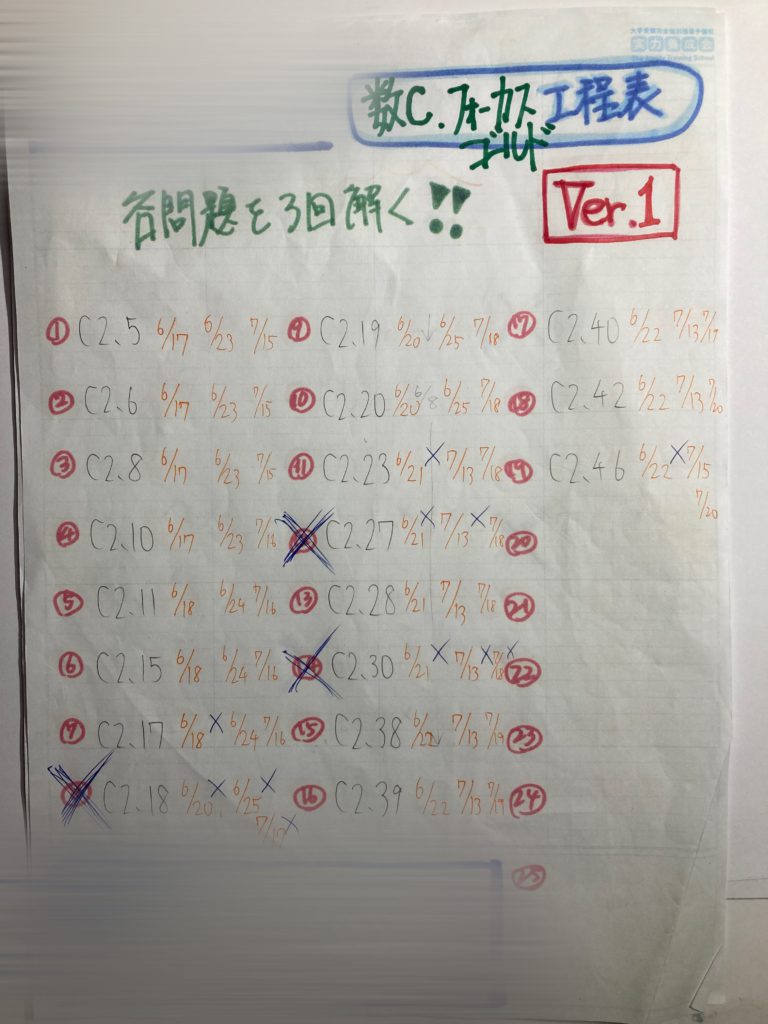 大学受験完全個別指導予備校
実力養成会
数C.フォーカス 工程表
ゴールド
各問題を3回解く!!
Ver.1
① C2.5 6/17 6/23 7/15
② C2.6 6/17 6/23 7/15
③ C2.8 6/17 6/23 7/15
④ C2.10 6/17 6/23 7/16
⑤ C2.11 6/18 6/24 7/16
⑥ C2.15 6/18 6/24 7/16
⑦ C2.17 6/18 × 6/24 7/16
C2.18 6/20 × 6/25 ×
×
⑨ C2.19 6/20 ↓ 6/25 7/18
⑩ C2.20 6/20 6/25 7/18
⑪ C2.23 6/21 × 7/13 7/18
C2.27 6/21 × 7/13 × 7/18
⑬ C2.28 6/21 7/13 7/18
C2.30 6/21 × 7/13 × 7/18 ×
⑮ C2.38 6/22 7/13 7/19
⑯ C2.39 6/22 7/13 7/19
⑰ C2.40 6/22 7/13 7/19
⑱ C2.42 6/22 7/13 7/20
⑲ C2.46 6/22 × 7/15
7/20
⑳
㉑
㉒
㉓
㉔
㉕